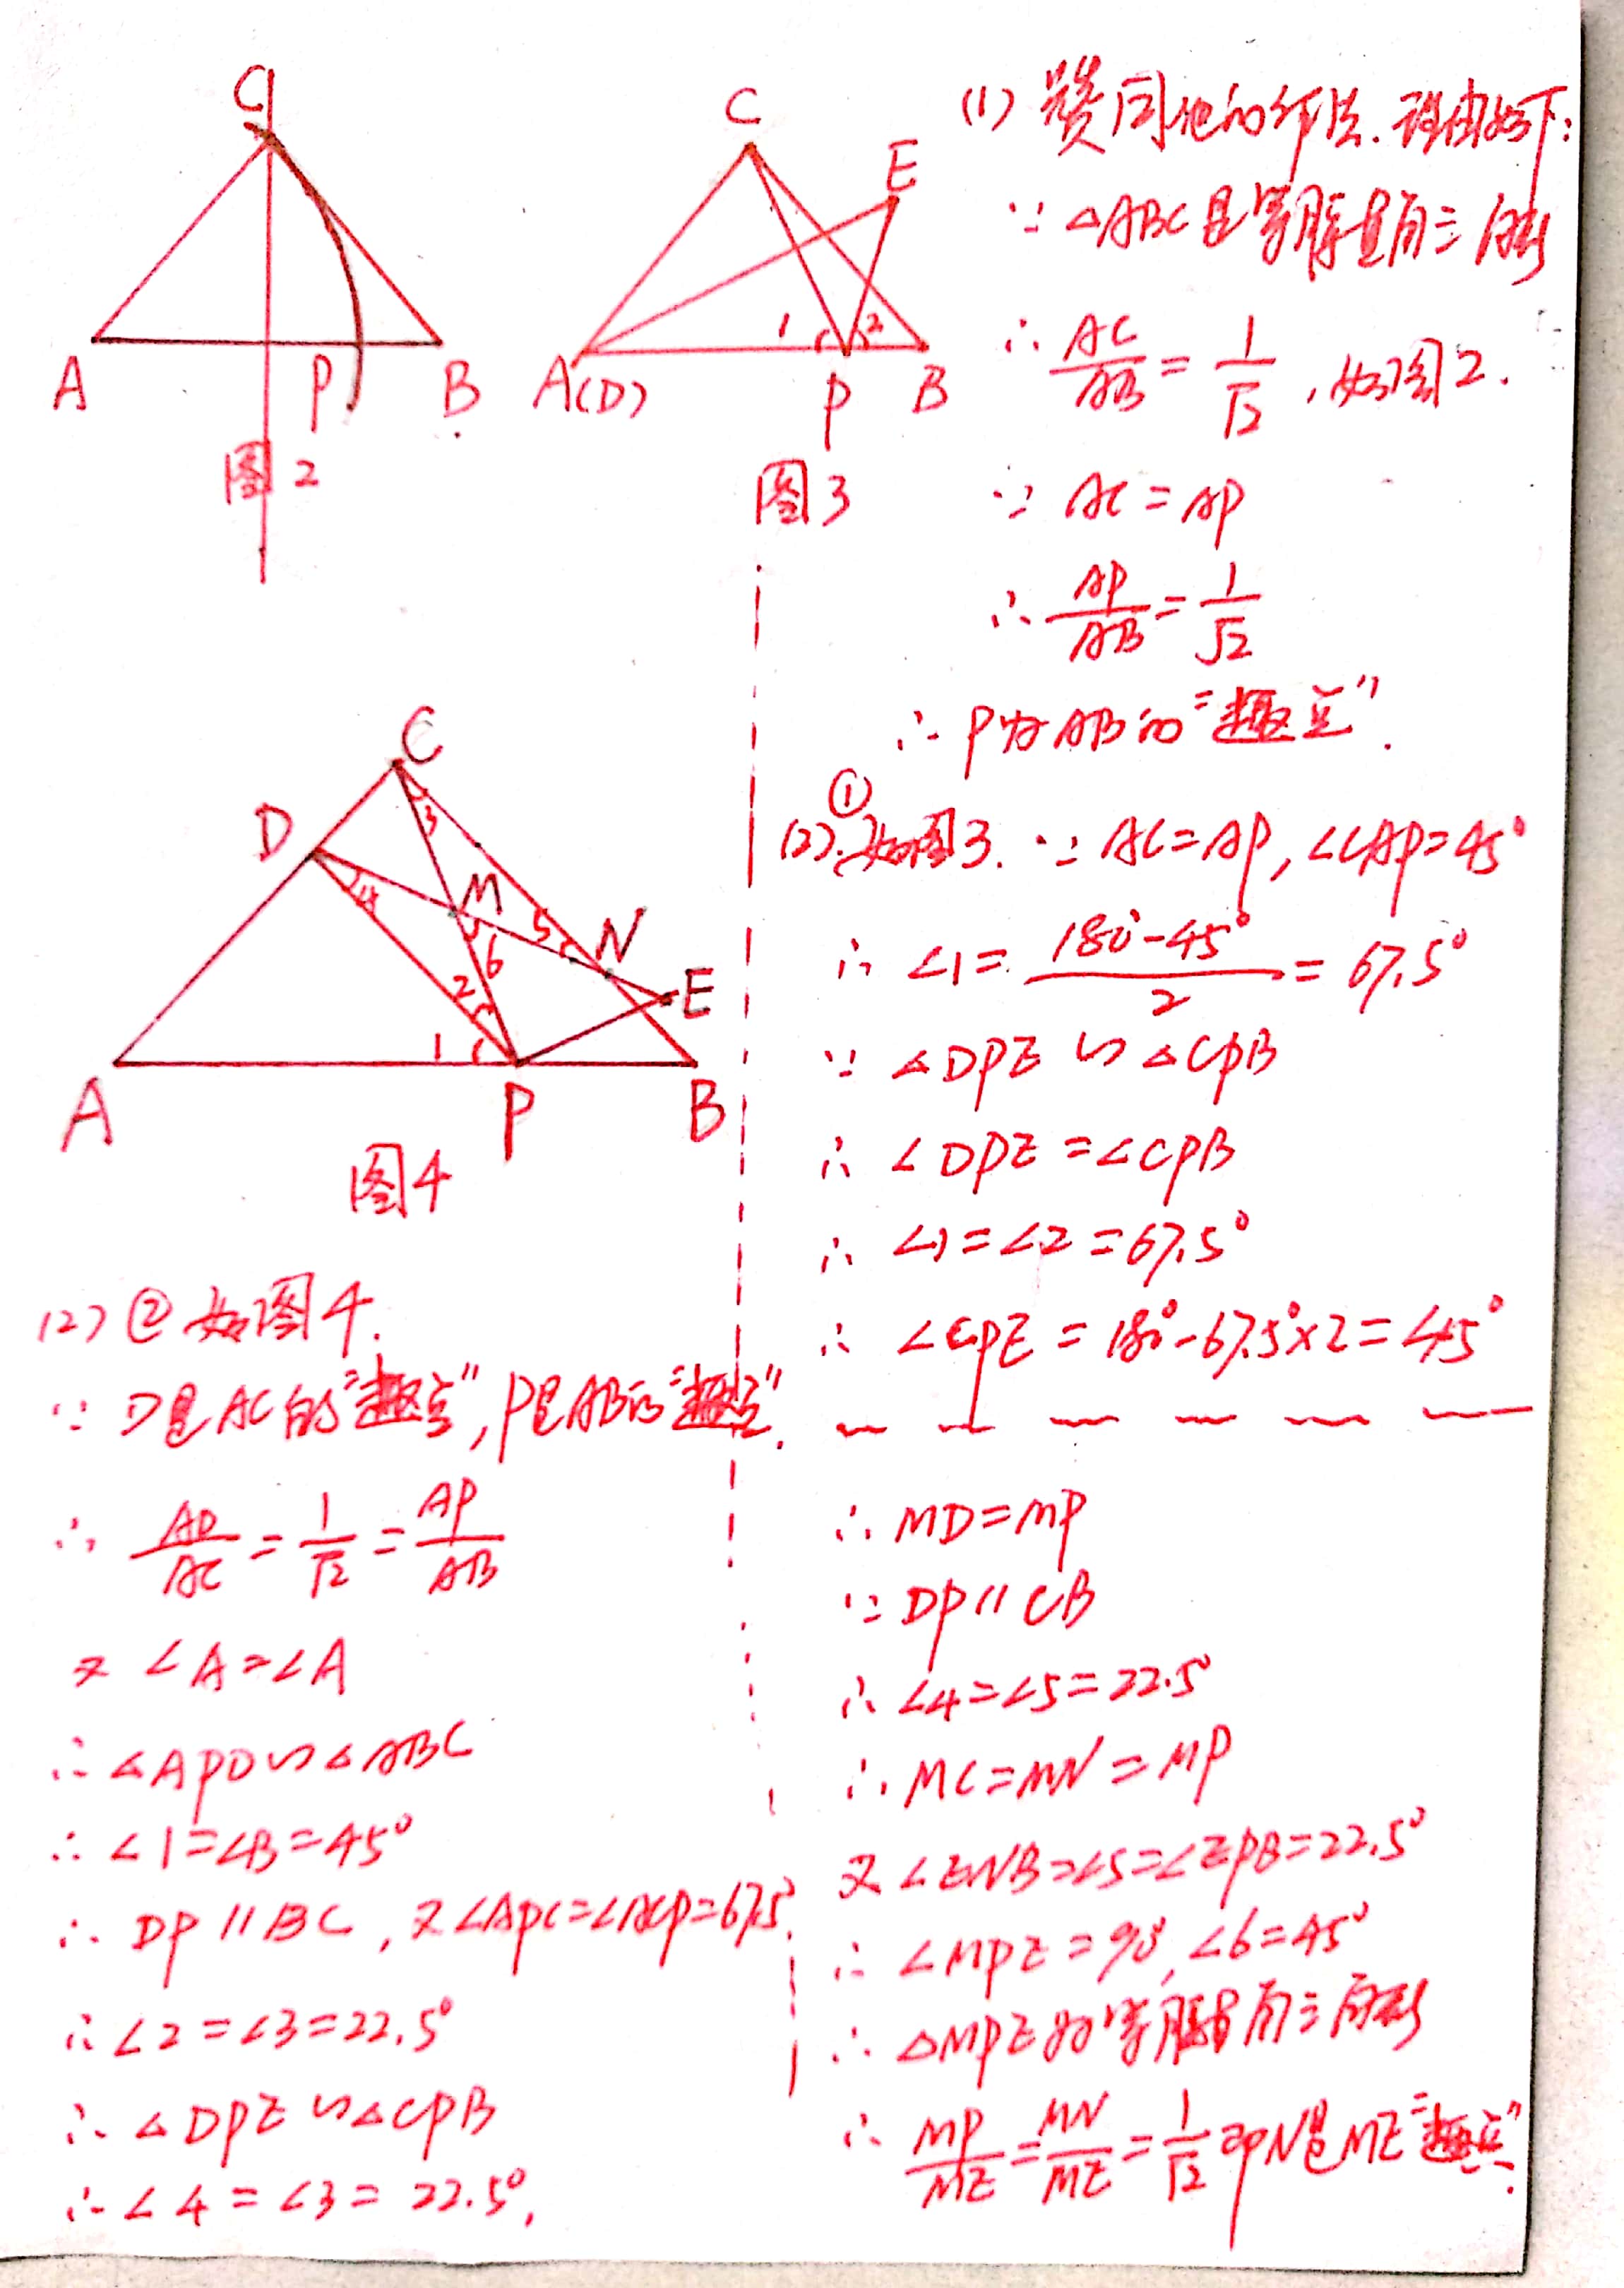 C
A
P
B
图2
C
E
1
2
A(D)
P
B
图3
(1) 赞同他的作法.理由如下:
∵ △ABC是等腰直角三角形
∴ AC/AB = 1/√2 ,如图2.
∵ AC = AP
∴ AP/AB = 1/√2
∴ P为AB的"趣点".
C
D
3
4
M
5
N
6
2
E
1
A
P
B
图4
(2)①如图3. ∵ AC=AP, ∠CAP=45°
∴ ∠1 = (180°-45°)/2 = 67.5°
∵ △DPE ∽ △CPB
∴ ∠DPE = ∠CPB
∴ ∠1=∠2=67.5°
∴ ∠CPE = 180°-67.5°×2=45°
(2) ② 如图4.
∵ D是AC的"趣点",P是AB的"趣点".
∴ AD/AC = 1/√2 = AP/AB
又 ∠A=∠A
∴ △APD∽△ABC
∴ ∠1=∠B=45°
∴ DP∥BC,又∠APC=∠ACP=67.5°
∴ ∠2=∠3=22.5°
∴ △DPE∽△CPB
∴ ∠4=∠3=22.5°,
∴ MD=MP
∵ DP∥CB
∴ ∠4=∠5=22.5°
∴ MC=MN=MP
又 ∠ENB=∠5=∠EPB=22.5°
∴ ∠MPE=90°,∠6=45°
∴ △MPE为等腰直角三角形
∴ MP/ME = MN/ME = 1/√2 即N是ME"趣点".